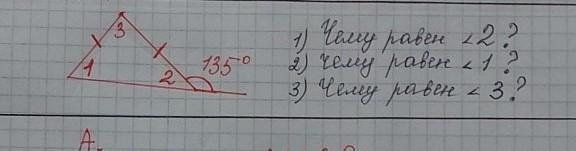 3
1) Чему равен <2?
1 2 135° 2) Чему равен <1?
3) Чему равен <3?
А